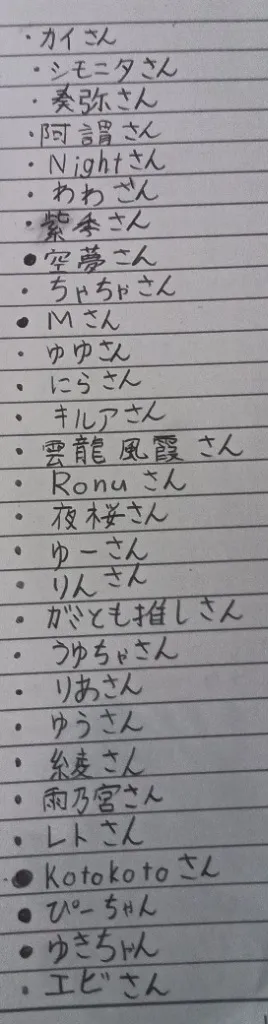 ・カイさん
・シモニタさん
・奏弥さん
・阿謂さん
・Nightさん
・わわさん
・紫季さん
・空夢さん
・ちゃちゃさん
・Mさん
・ゆゆさん
・にらさん
・キルアさん
・雲龍風霞さん
・Ronuさん
・夜桜さん
・ゆーさん
・りんさん
・ガミとも推しさん
・うゆちゃさん
・りあさん
・ゆうさん
・綾さん
・雨乃宮さん
・レトさん
・Kotokotoさん
・ぴーちゃん
・ゆきちゃん
・エビさん